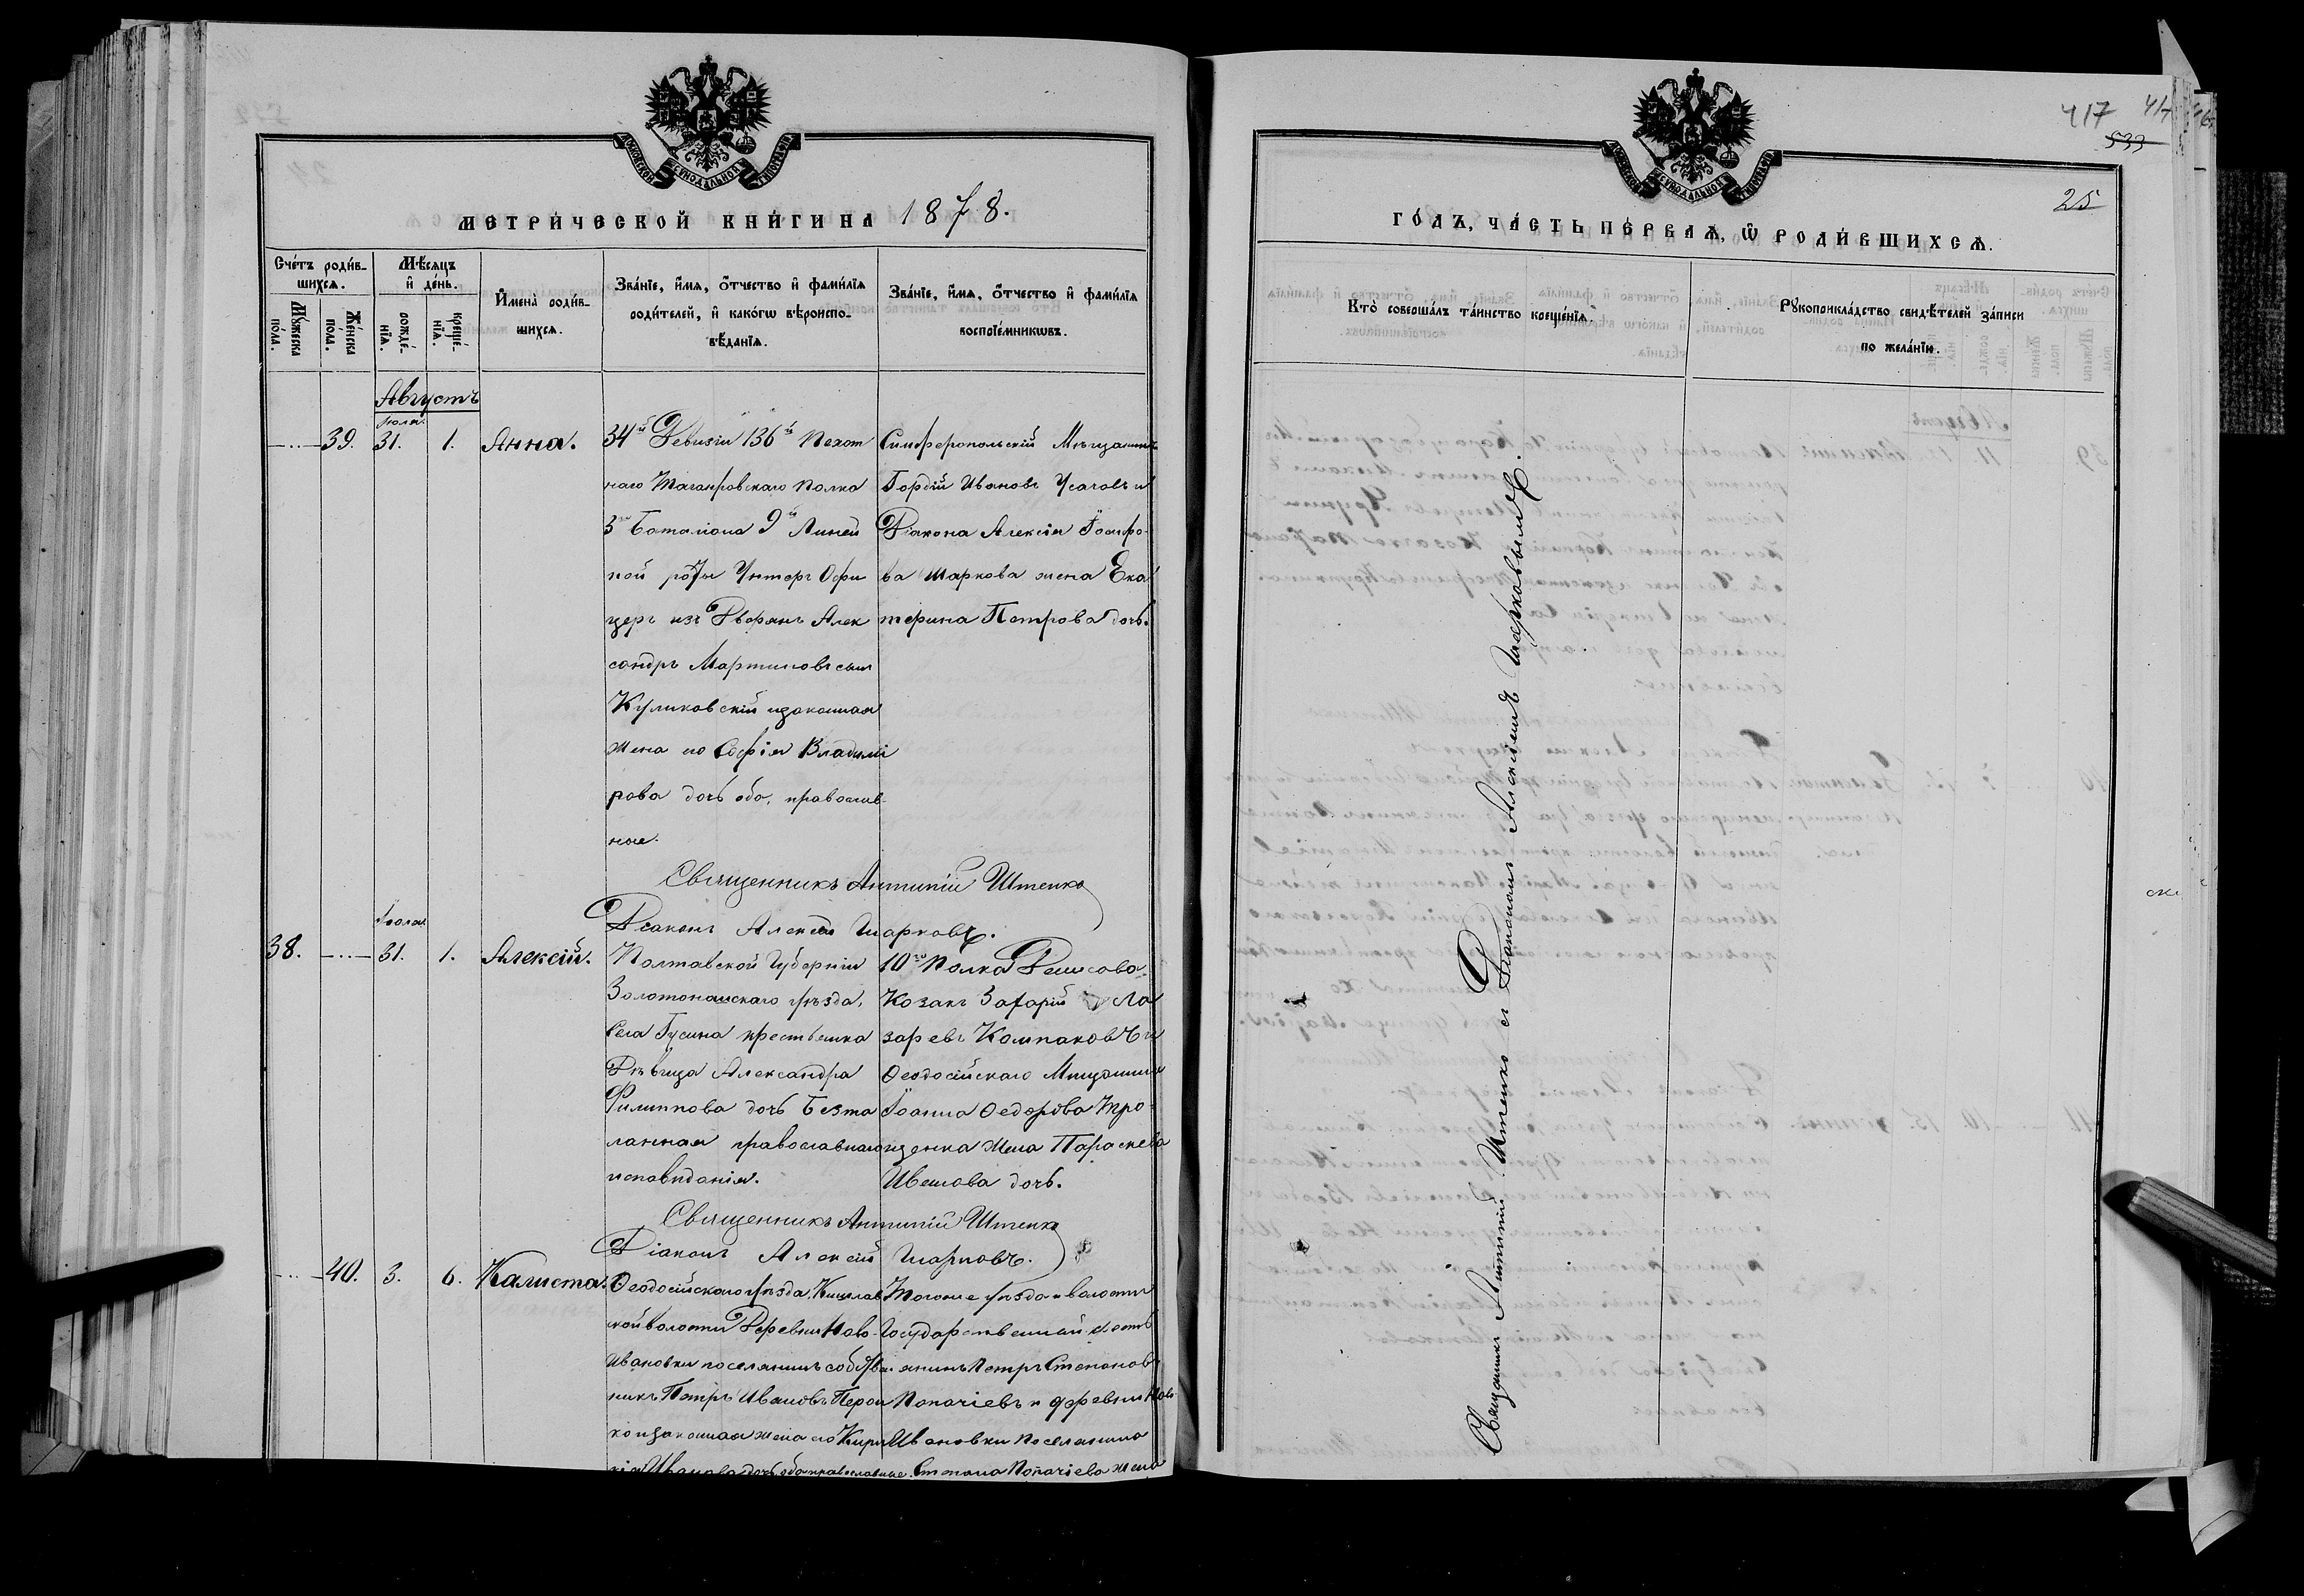 МОСКОВСКОЙ СѴНОДАЛЬНОЙ ТИПОГРАФІИ
МЕТРИ́ЧЕСКОЙ КНИ́ГИ НА 1878.
Сче́тъ роди́в-
шихсѧ.
Мꙋ́жеска
по́ла.
Же́нска
по́ла.
Мѣ́сѧцъ
и҆ де́нь.
рожде́-
нїѧ.
креще́-
нїѧ.
И҆мена̀ роди́в-
шихсѧ.
Зва́нїе, и҆́мѧ, ѻ҆́тчество и҆ фами́лїѧ
роди́телей, и҆ како́гѡ вѣроиспо-
вѣ́данїѧ.
Зва́нїе, и҆́мѧ, ѻ҆́тчество и҆ фами́лїѧ
воспрїе́мникѡвъ.
Августъ
Іюля.
39. 31. 1. Анна.
34й Девизіи 136го Пехот
наго Таганровскаго полка
3го Баталіона 9й Линей
ной роты Унтеръ Офи
церъ изъ Дворянъ Алек
сандръ Мартиновъ сынъ
Куликовскій изаконная
жена его Софія Владимі
рова дочь оба, православ-
ные.
Симферопольскій Мѣщанинъ
Гордій Ивановъ Усачовъ и
Діакона Алексія Іоанфо-
ва Шаркова жена Ека
терина Петрова дочь.
Священникъ Антипій Штенко
Діаконъ Алексій Шарковъ.
Іюля.
38. 31. 1. Алексій.
Полтавской Губерніи
Золотоношскаго уѣзда,
Села Гусина крестьянка
Дѣвица Александра
Филиппова дочь безта
ланная православнаго
исповиданія.
10го Полка
Козакъ Захарій Ла
заревъ Компаковъ и
Ѳеодосійскаго Мищанина
Іоанна Ѳедорова Тро-
ценка жена Параскева
Иванова дочь.
Священникъ Антипій Штенко
Діаконъ Алексій Шарковъ.
40. 3. 6. Калиста.
Ѳеодосійскаго уѣзда, Кишлав
ской волости Деревни Ново-
Ивановки поселянинъ собстве-
никъ Петръ Ивановъ
ко изаконная жена его Кири
кія Иванова дочь оба православные.
Тогоже уѣзда и волости
Государственный крестъ
янинъ Петръ Степановъ
Попачіевъ и деревни Ново
Ивановки поселянина
Степана Попачіева жена
417
533
25
МОСКОВСКОЙ СѴНОДАЛЬНОЙ ТИПОГРАФІИ
ГО́ДЪ, ЧА́СТЬ ПЕ́РВАѦ, Ѽ РОДИ́ВШИХСѦ.
Кто̀ соверша́лъ та́инство креще́нїѧ.
Рꙋкоприкла́дство свидѣ́телей за́писи
по жела́нїю.
Священникъ Антипій Штенко съ Діакономъ Алексіемъ Шарковымъ.